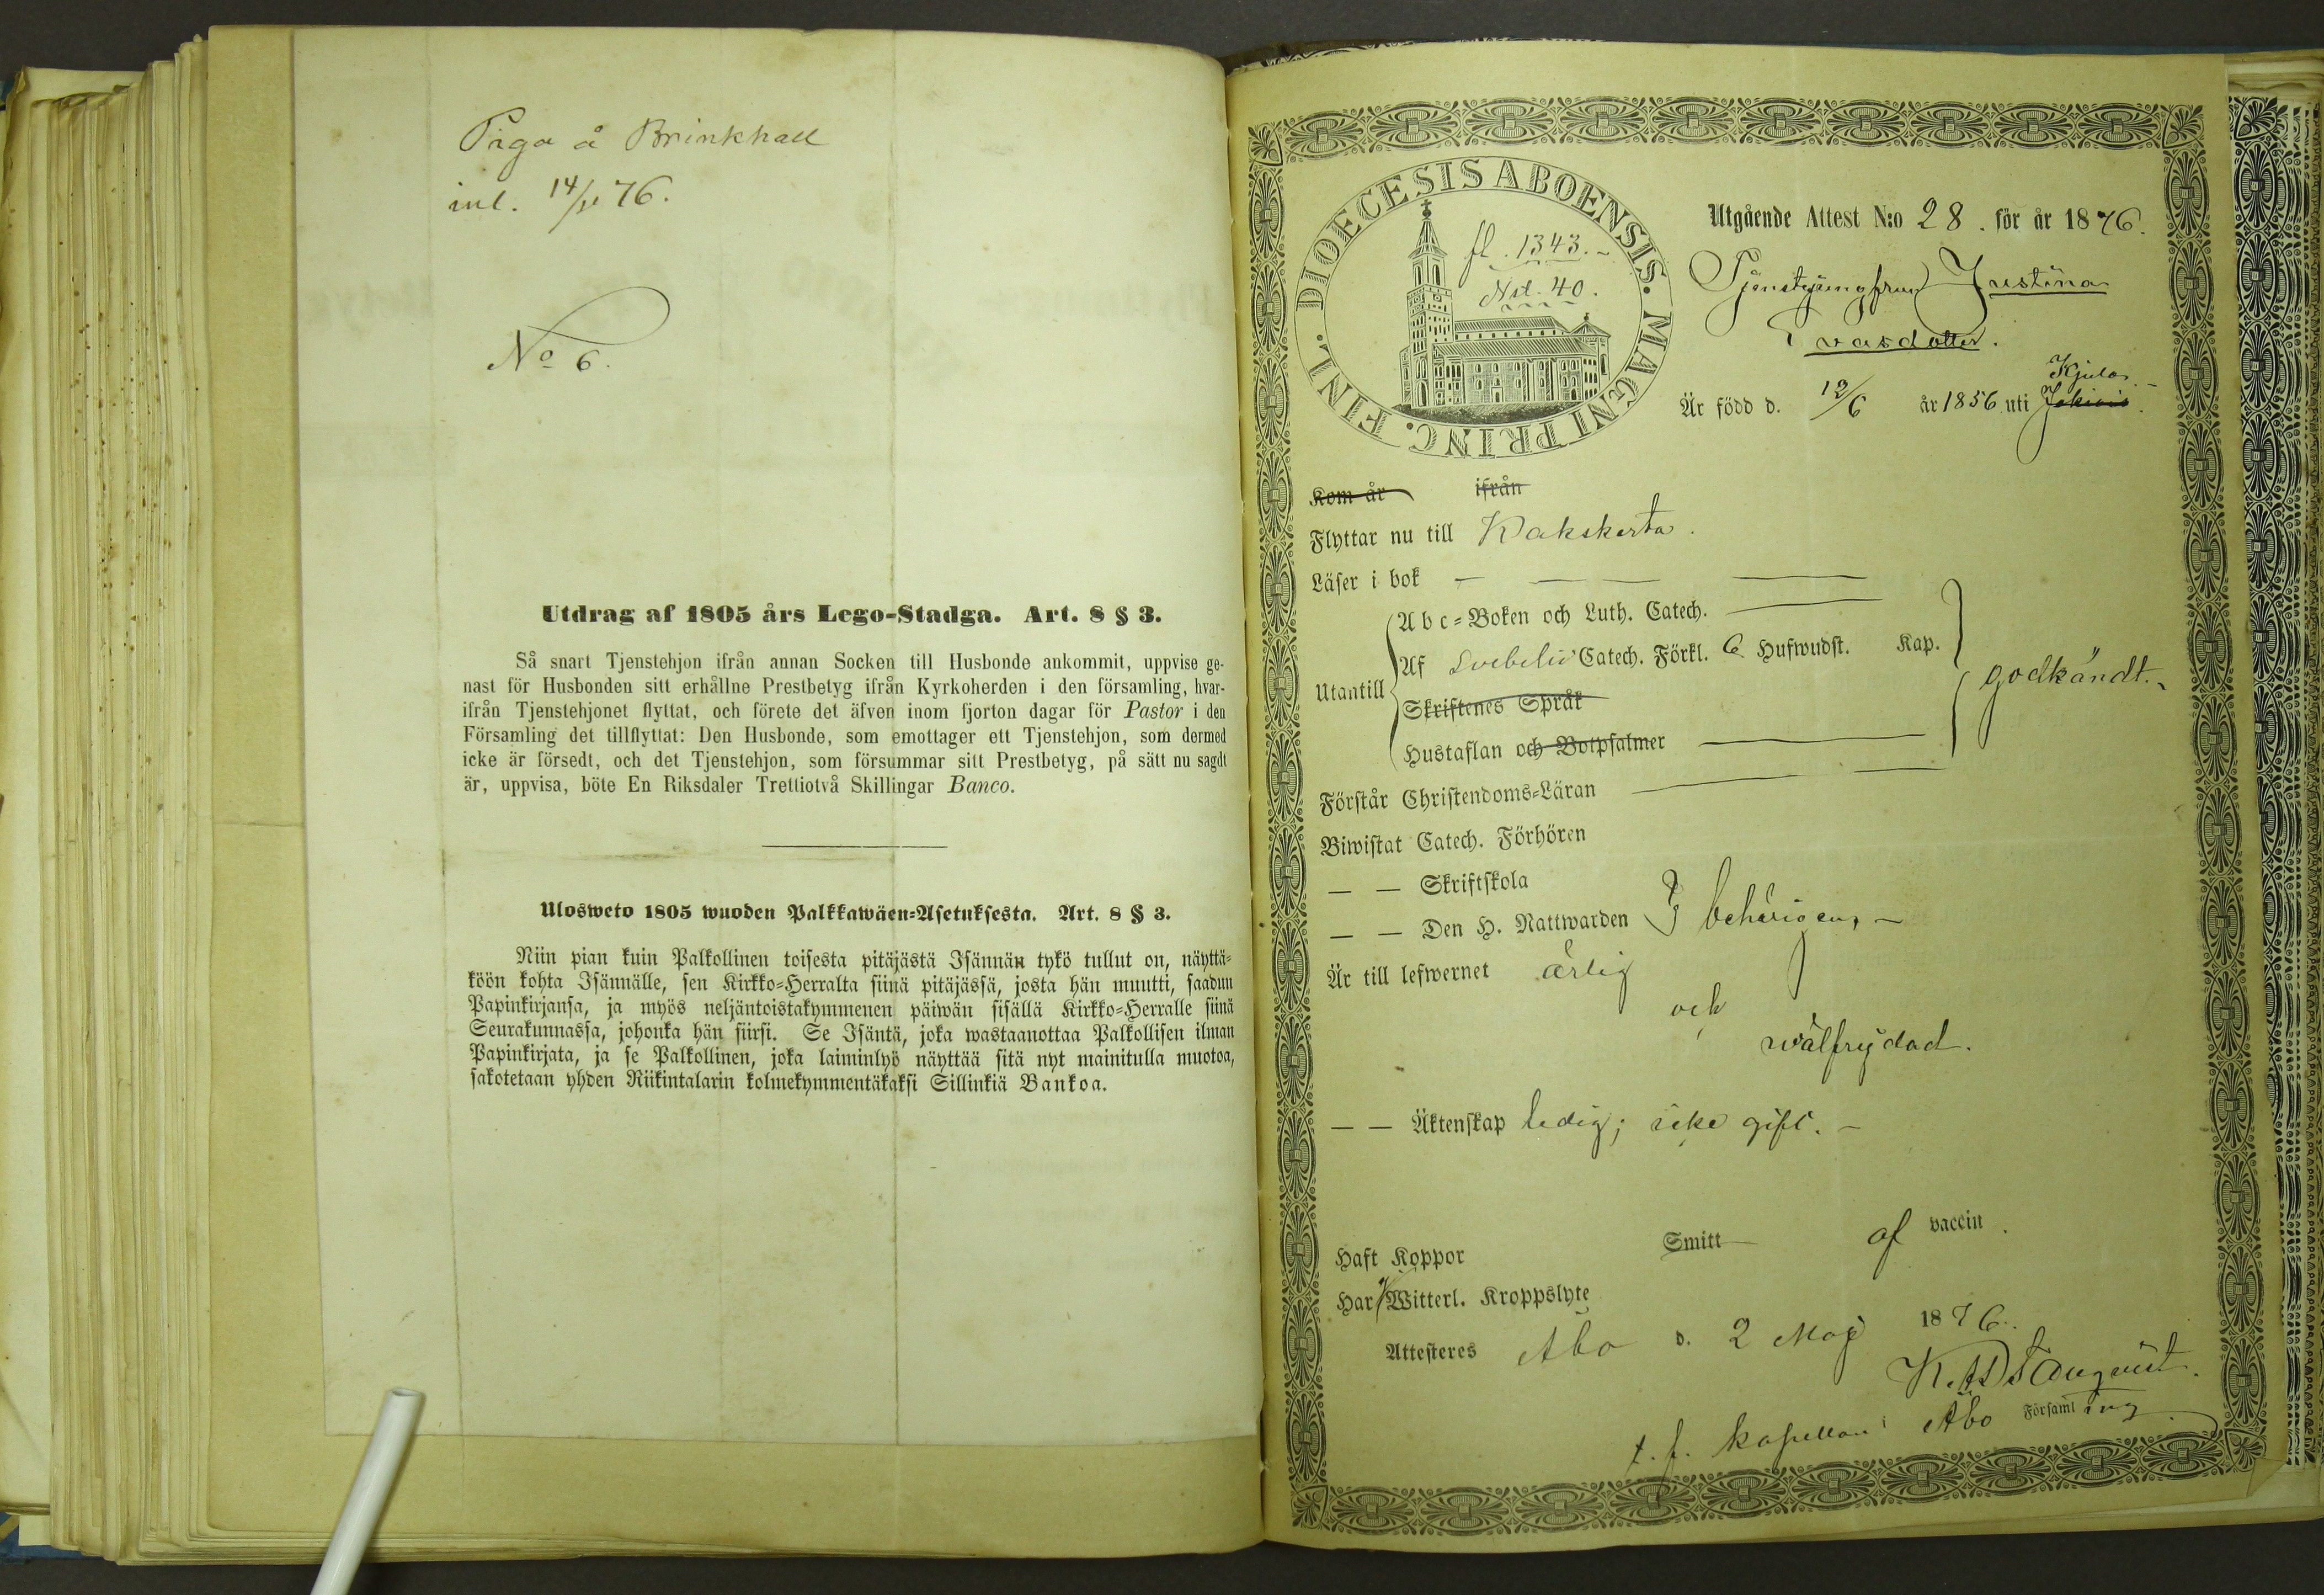 Piga å Brinkhall
inl. 14/11 76.
No 6.
Utdrag af 1805 års Lego-Stadga. Art. 8 § 3.
Så snart Tjenstehjon ifrån annan Socken till Husbonde ankommit, uppvise ge-
nast för Husbonden sitt erhållne Prestbetyg ifrån Kyrkoherden i den församling, hvar-
ifrån Tjenstehjonet flyttat, och förete det äfven inom fjorton dagar för Pastor i den
Församling det tillflyttat: Den Husbonde, som emottager ett Tjenstehjon, som dermed
icke är försedt, och det Tjenstehjon, som försummar sitt Prestbetyg, på sätt nu sagdt
är, uppvisa, böte En Riksdaler Trettiotvå Skillingar Banco.
Ulosweto 1805 wuoden Palkkawäen-Asetuksesta. Art. 8 § 3.
Niin pian kuin Palkollinen toisesta pitäjästä Isännän tykö tullut on, näyttä-
köön kohta Isännälle, sen Kirkko-Herralta siinä pitäjässä, josta hän muutti, saadun
Papinkirjansa, ja myös neljäntoistakymmenen päiwän sisällä Kirkko-Herralle siinä
Seurakunnassa, johonka hän siirsi. Se Isäntä, joka wastaanottaa Palkollisen ilman
Papinkirjata, ja se Palkollinen, joka laiminlyö näyttää sitä nyt mainitulla muotoa,
sakotetaan yhden Riikintalarin kolmekymmentäkaksi Sillinkiä Bankoa.
DIOECESIS ABOENSIS. MAGNI PRINC. FINL.
fl. 1343.-
Nst. 40.
Utgående Attest N:o 28. för år 1876.
Tjenstejungfrun Justina
Evasdotter.
Kjulo.-
Är född d. 12/6 år 1856 uti Jokiois.
Kom år ifrån
Flyttar nu till Kakskerta.
Läser i bok — — — —
Abc-Boken och Luth. Catech. —
Utantill Af Svebelii Catech. Förkl. 6 Hufwudst. Kap. godkändt.-
Skriftenes Språk
Hustaflan och Botpsalmer —
Förstår Christendoms-Läran —
Biwistat Catech. Förhören
— — Skriftskola
— — Den H. Nattwarden I behörigen,-
Är till lefwernet ärlig
och
wälfrejdad.
— — Äktenskap ledig; icke gift.-
Haft Koppor Smitt af vaccin.
Har Witterl. Kroppslyte
Attesteres Åbo d. 2 Maj 1876.
t.f. kapellan i Åbo Församling